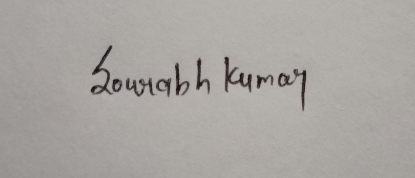 Sourabh Kumar